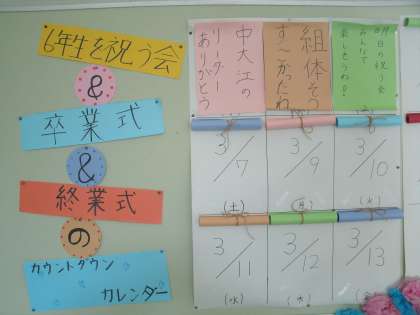 6年生を祝う会
&
卒業式
&
終業式
の
カウントダウン
カレンダー
中大江の
リーダー
ありがとう
組体そう
す〜ごかったわ
明日の祝う会
みんなで
楽しもうね!
3/7
3/9
3/10
(土)
(月)
(火)
3/11
3/12
3/13
(水)
(木)